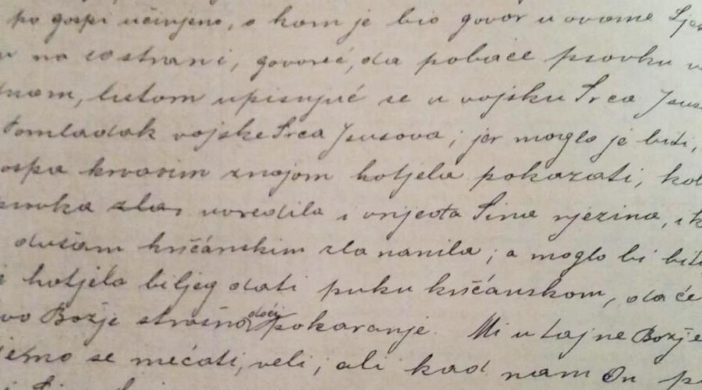 po gospi učinjeno, o kom je bio govor u ovome
na strani, govoreć, da pobače psovku
upisujuć se u vojsku Srca
Pomladak vojske Srca Isusova; jer moglo je biti,
krvavim znojem hotjela pokazati,
uvredila i Sina njezina,
dušam kršćanskim zla nanila; a moglo bi biti
hotjela biljeg dati puku kršćanskom, da će
Božje strašno doći pokaranje. Mi u tajne Božje
se mećati, veli, ali kad nam On